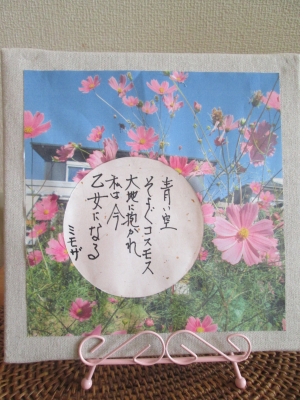 青い空
そよぐコスモス
大地に抱かれ
私は今
乙女になる
ミモザ